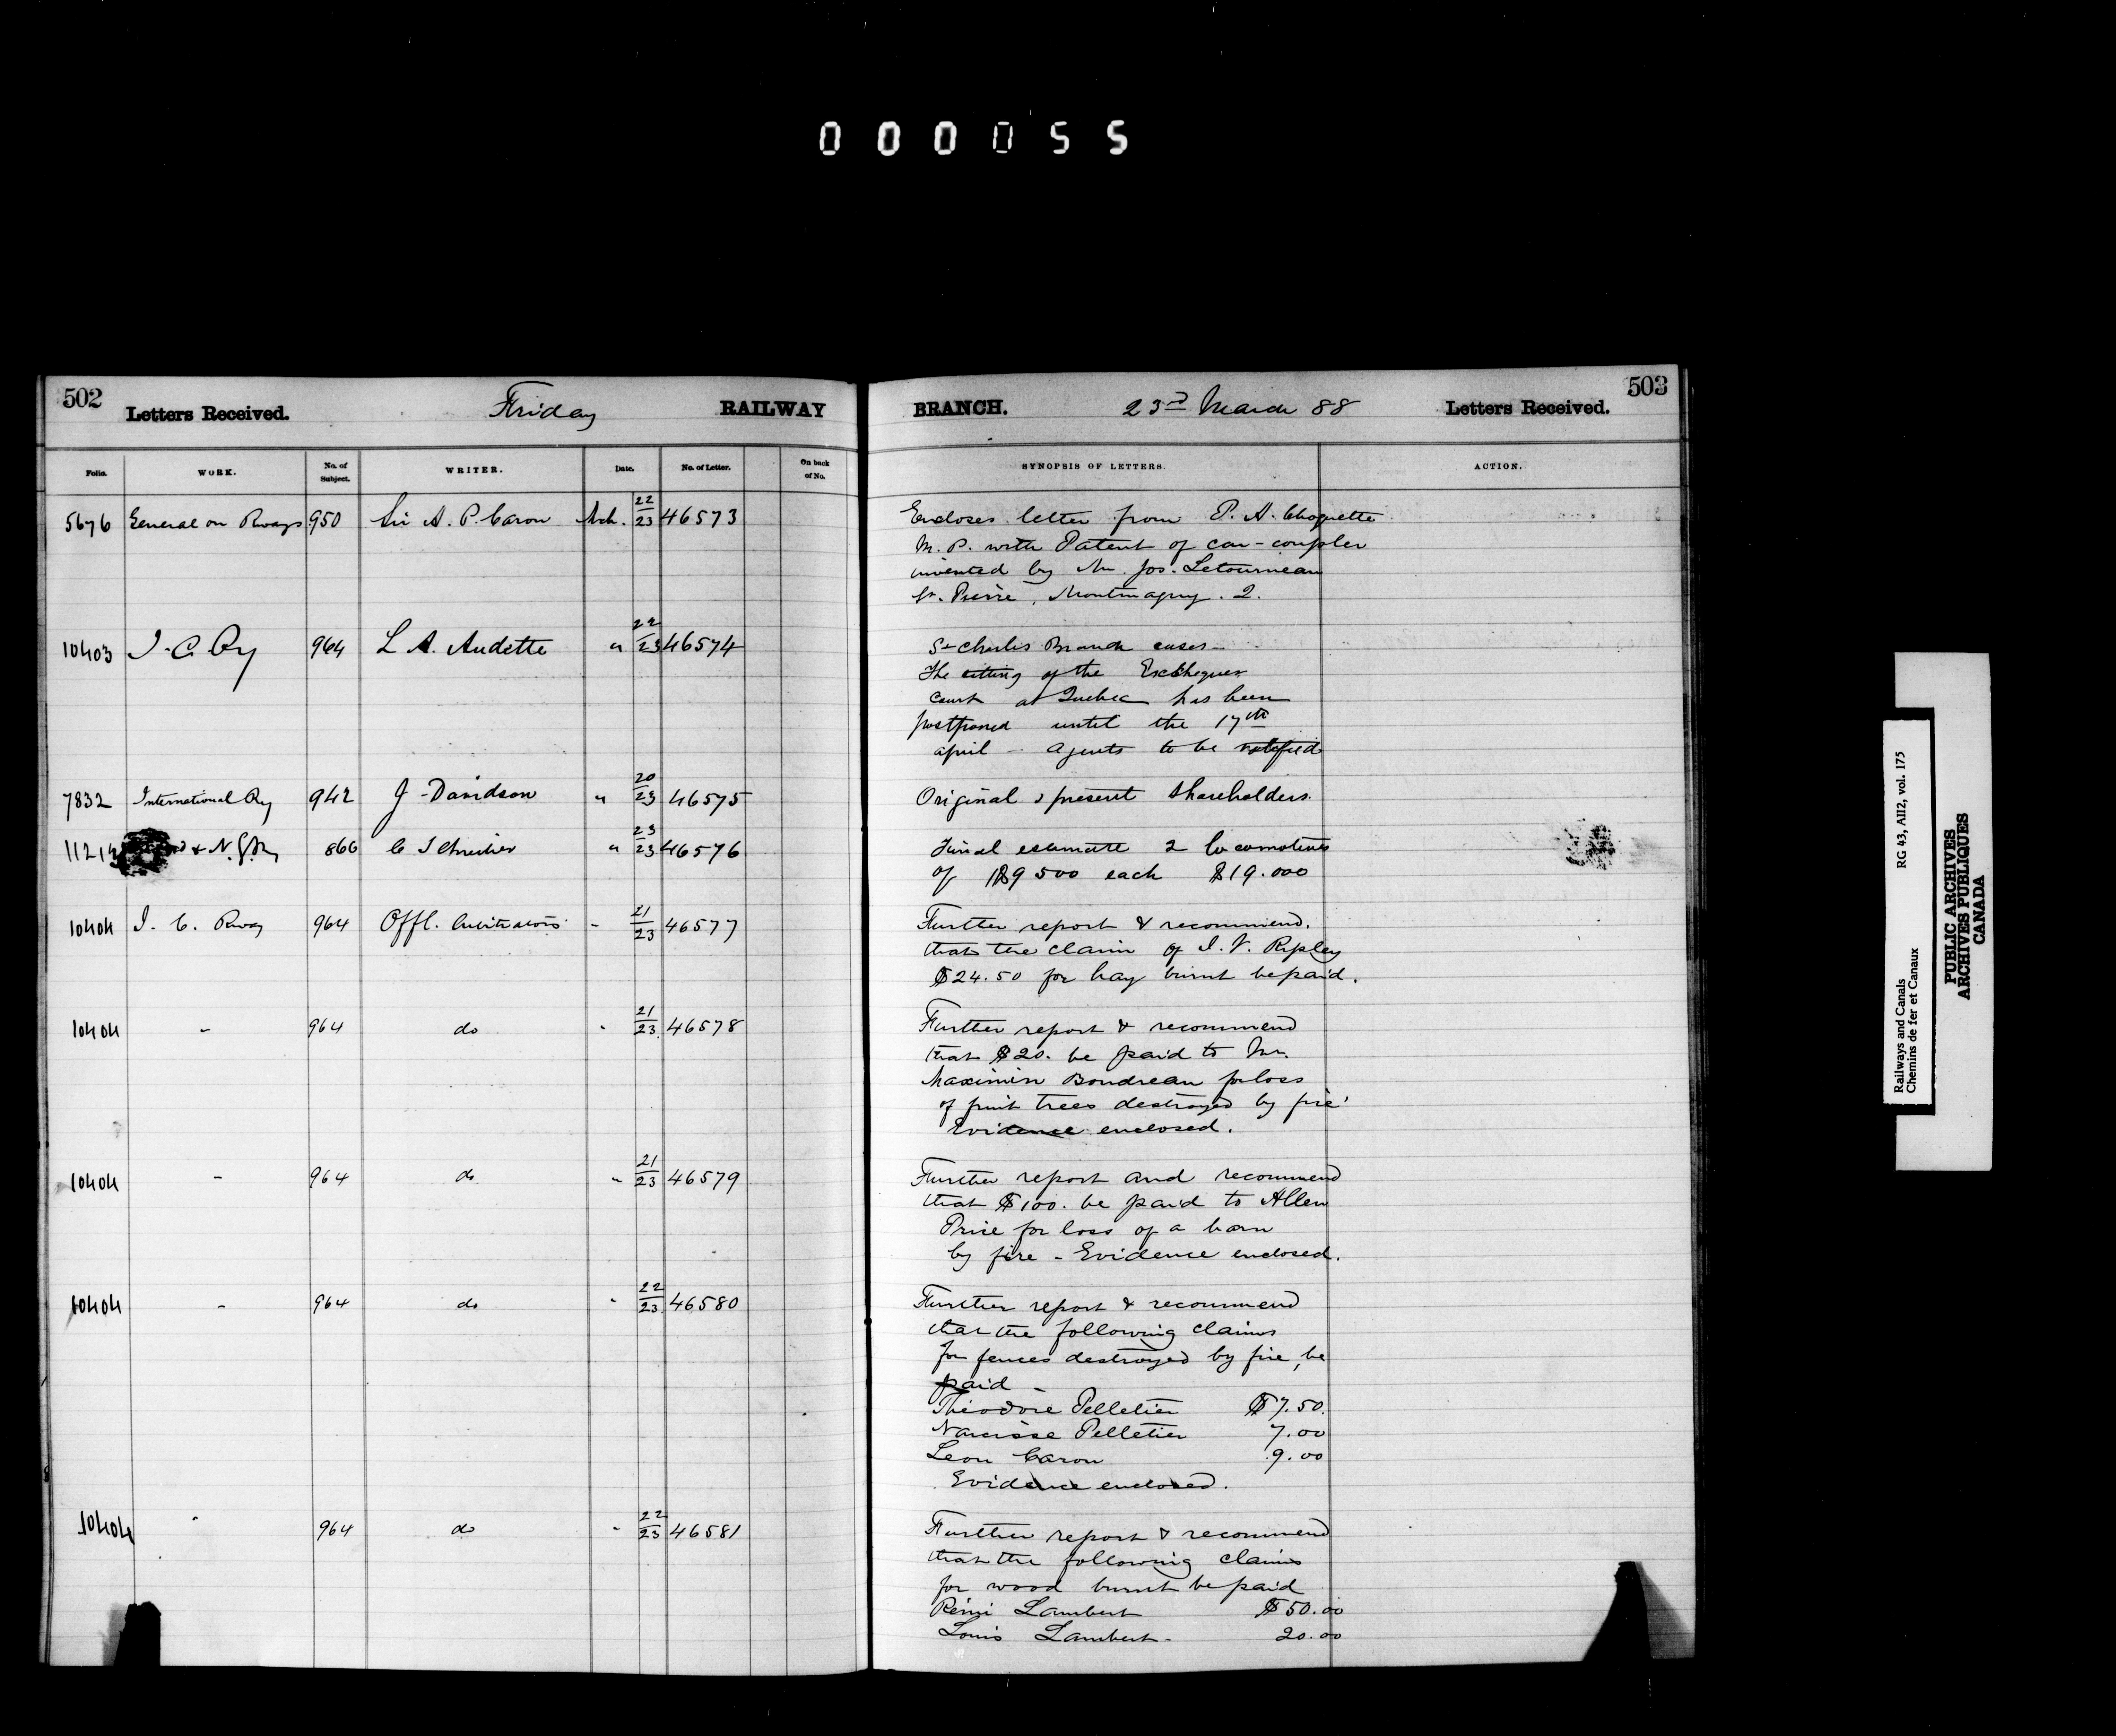 000055
502
Letters Received.
Friday
RAILWAY
BRANCH.
23rd March 88
Letters Received.
503
Folio.
WORK.
No. of Subject.
WRITER.
Date.
No. of Letter.
On back of No.
SYNOPSIS OF LETTERS.
ACTION.
5676 General on Rways 950 Sir A. P. Caron Mch. 22/23 46573
Encloses letter from P. A. Choquette
M. P. with Patent of car-coupler
invented by Mr. Jos. Letourneau
St. Pierre, Montmagny. Q.
10403 I. C Ry 964 L A. Audette " 22/23 46574
St Charles Branch cases -
The sitting of the Exchequer
Court at Quebec has been
postponed until the 17th
april - agents to be notified
7832 International Ry 942 J Davidson " 20/23 46575
Original & present Shareholders.
& N. 866 C Schreiber " 23/23 46576
Final estimate 2 locomotives
of $9500 each $19.000
10404 I. C. Rway 964 Offl. Arbitrators - 21/23 46577
Further report & recommend.
that the claim of I. V. Ripley
$24.50 for hay burnt be paid.
10404 - 964 do - 21/23 46578
Further report & recommend
that $20. be paid to Mr.
Maximin Boudreau for loss
of fruit trees destroyed by fire
Evidence enclosed.
10404 - 964 do " 21/23 46579
Further report and recommend
that $100. be paid to Allen
Price for loss of a barn
by fire - Evidence enclosed.
10404 - 964 do - 22/23 46580
Further report & recommend
that the following claims
for fences destroyed by fire, be
paid -
Théodore Pelletier $7.50.
Narcisse Pelletier 7.00
Leon Caron 9.00
Evidence enclosed.
10404 " 964 do - 22/23 46581
Further report & recommend
that the following claims
for wood burnt be paid
Rémi Lambert $50.00
Louis Lambert - 20.00
Railways and Canals RG 43, AII2, vol. 175
Chemins de fer et Canaux
PUBLIC ARCHIVES
ARCHIVES PUBLIQUES
CANADA